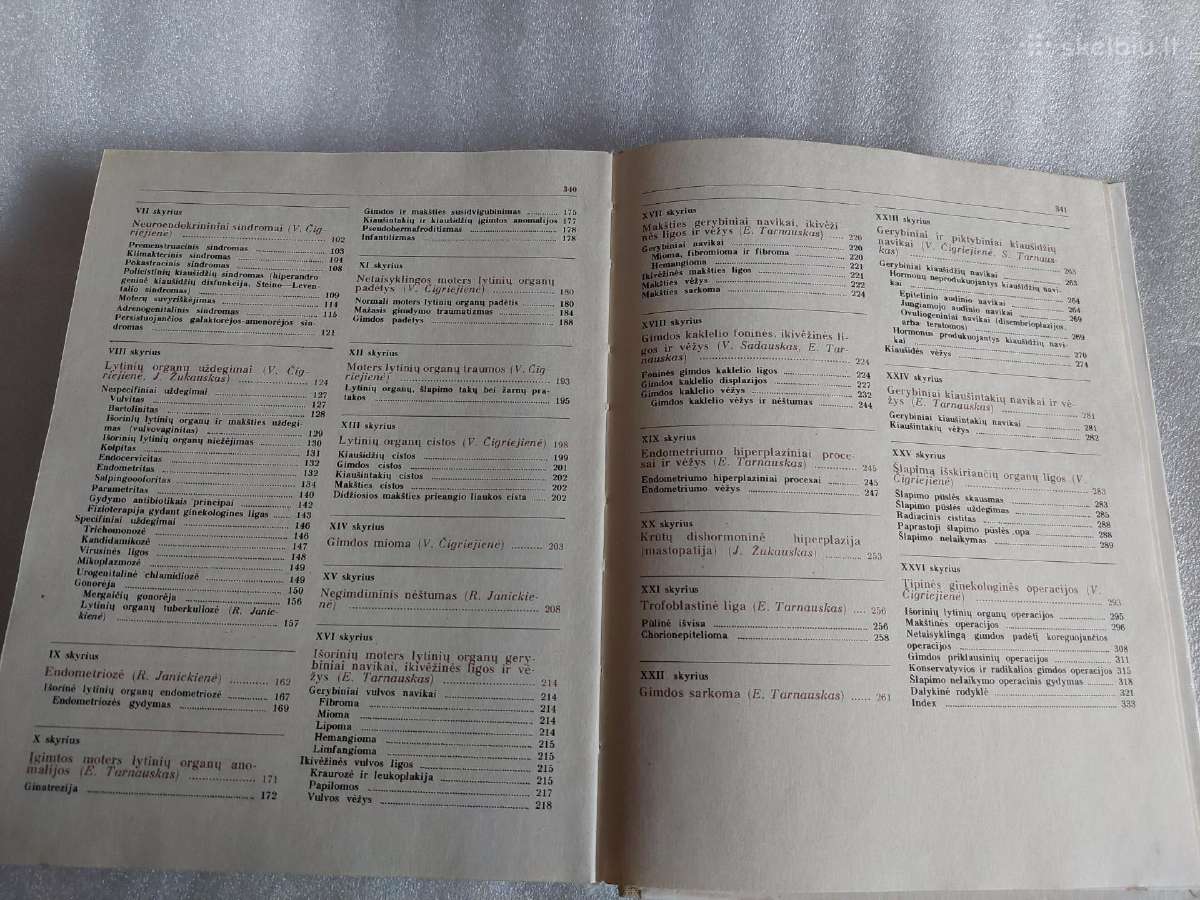 skelbiu.lt
340
VII skyrius
Neuroendekrininiai sindromai (V. Čig-
riejienė) 102
Premenstruacinis sindromas 103
Klimakterinis sindromas 104
Pokastracinis sindromas 108
Policistinių kiaušidžių sindromas (hiperandro
geninė kiaušidžių disfunkcija, Steino—Leven-
talio sindromas) 109
Moterų suvyriškėjimas 114
Adrenogenitalinis sindromas 115
Persistuojančios galaktorėjos-amenorėjos sin-
dromas 121
VIII skyrius
Lytinių organų uždegimai (V. Čig-
riejienė, J. Žukauskas) 124
Nespecifiniai uždegimai 127
Vulvitas 127
Bartolinitas 128
Išorinių lytinių organų ir makšties uždegi-
mas (vulvovaginitas) 129
Išorinių lytinių organų niežėjimas 130
Kolpitas 131
Endocervicitas 132
Endometritas 132
Salpingoooforitas 134
Parametritas 140
Gydymo antibiotikais principai 142
Fizioterapija gydant ginekologines ligas 143
Specifiniai uždegimai 146
Trichomonozė 146
Kandidamikozė 147
Virusinės ligos 148
Mikoplazmozė 149
Urogenitalinė chlamidiozė 149
Gonorėja 150
Mergaičių gonorėja 156
Lytinių organų tuberkuliozė (R. Janic-
kienė) 157
IX skyrius
Endometriozė (R. Janickienė) 162
Išorinė lytinių organų endometriozė 167
Endometriozės gydymas 169
X skyrius
Įgimtos moters lytinių organų ano-
malijos (E. Tarnauskas) 171
Ginatrezija 172
Gimdos ir makšties susidvigubinimas 175
Kiaušintakių ir kiaušidžių įgimtos anomalijos 177
Pseudohermafroditizmas 178
Infantilizmas 178
XI skyrius
Netaisyklingos moters lytinių organų
padėtys (V. Čigriejienė) 180
Normali moters lytinių organų padėtis 180
Mažasis gimdymo traumatizmas 184
Gimdos padėtys 188
XII skyrius
Moters lytinių organų traumos (V. Čig
riejienė) 193
Lytinių organų, šlapimo takų bei žarnų pra-
takos 195
XIII skyrius
Lytinių organų cistos (V. Čigriejienė) 198
Kiaušidžių cistos 199
Gimdos cistos 201
Kiaušintakių cistos 202
Makšties cistos 202
Didžiosios makšties prieangio liaukos cista 202
XIV skyrius
Gimdos mioma (V. Čigriejienė) 203
XV skyrius
Negimdiminis nėštumas (R. Janickie-
nė) 208
XVI skyrius
Išorinių moters lytinių organų gery-
biniai navikai, ikivėžinės ligos ir vė-
žys (E. Tarnauskas) 214
Gerybiniai vulvos navikai 214
Fibroma 214
Mioma 214
Lipoma 214
Hemangioma 215
Limfangioma 215
Ikivėžinės vulvos ligos 215
Kraurozė ir leukoplakija 215
Papilomos 217
Vulvos vėžys 218
341
XVII skyrius
Makšties gerybiniai navikai, ikivėži
nės ligos ir vėžys (E. Tarnauskas) 220
Gerybiniai navikai 220
Mioma, fibromioma ir fibroma 220
Hemangioma 221
Ikivėžinės makšties ligos 221
Makšties vėžys 222
Makšties sarkoma 224
XVIII skyrius
Gimdos kaklelio foninės, ikivėžinės li-
gos ir vėžys (V. Sadauskas, E. Tar-
nauskas) 224
Foninės gimdos kaklelio ligos 224
Gimdos kaklelio displazijos 227
Gimdos kaklelio vėžys 232
Gimdos kaklelio vėžys ir nėštumas 244
XIX skyrius
Endometriumo hiperplaziniai proce-
sai ir vėžys (E. Tarnauskas) 245
Endometriumo hiperplaziniai procesai 245
Endometriumo vėžys 247
XX skyrius
Krūtų dishormoninė hiperplazija
(mastopatija) (J. Žukauskas) 253
XXI skyrius
Trofoblastinė liga (E. Tarnauskas) 256
Pūlinė išvisa 256
Chorionepitelioma 258
XXII skyrius
Gimdos sarkoma (E. Tarnauskas) 261
XXIII skyrius
Gerybiniai ir piktybiniai kiaušidžių
navikai (V. Čigriejienė, S. Tarnaus-
kas) 263
Gerybiniai kiaušidžių navikai 263
Hormonų neprodukuojantys kiaušidžių navi-
kai 264
Epitelinio audinio navikai 264
Jungiamojo audinio navikai 269
Ovuliogeniniai navikai (disembrioplazijos,
arba teratomos) 269
Hormonus produkuojantys kiaušidžių navi-
kai 270
Kiaušidės vėžys 274
XXIV skyrius
Gerybiniai kiaušintakių navikai ir vė-
žys (E. Tarnauskas) 281
Gerybiniai kiaušintakių navikai 281
Kiaušintakių vėžys 282
XXV skyrius
Šlapimą išskiriančių organų ligos (V.
Čigriejienė) 283
Šlapimo pūslės skausmas 283
Šlapimo pūslės uždegimas 285
Radiacinis cistitas 288
Paprastoji šlapimo pūslės opa 288
Šlapimo nelaikymas 289
XXVI skyrius
Tipinės ginekologinės operacijos (V.
Čigriejienė) 293
Išorinių lytinių organų operacijos 295
Makštinės operacijos 296
Netaisyklingą gimdos padėtį koreguojančios
operacijos 308
Gimdos priklausinių operacijos 311
Konservatyvios ir radikalios gimdos operacijos 315
Šlapimo nelaikymo operacinis gydymas 318
Dalykinė rodyklė 321
Index 333